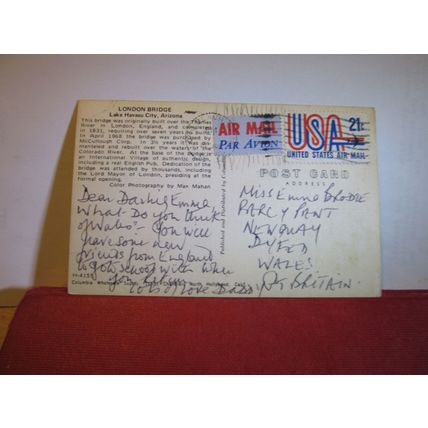 LONDON BRIDGE
Lake Havasu City, Arizona
This bridge was originally built over the Thames
River in London, England, and completed
in 1831, requiring over seven years to build.
In April 1968 the bridge was purchased by
McCulloch Corp. In 3½ years it was dis-
mantled and rebuilt over the waters of the
Colorado River. At the base of the bridge is
an International Village of authentic design,
including a real English Pub. Dedication of the
bridge was attended by thousands, including
the Lord Mayor of London, presiding at the
formal opening.
Color Photography by Max Mahan
Dear Darling Emma
What Do you think
of Wales? You will
have some new
friends from England
to go to school with when
you
lots of love Daddy
H-4155
Columbia Wholesale North Hollywood, Calif.
Published and Distributed by
AIR MAIL
PAR AVION
USA 21c
UNITED STATES AIR MAIL
POST CARD
ADDRESS
Miss Emma Brodie
PARCY PANT
NEWQUAY
DYFED
WALES
GT BRITAIN.